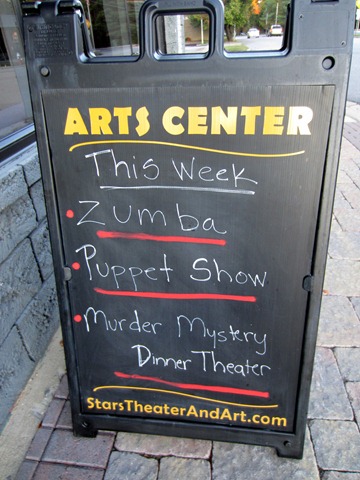 ARTS CENTER
This Week
Zumba
Puppet Show
Murder Mystery
Dinner Theater
StarsTheaterAndArt.com